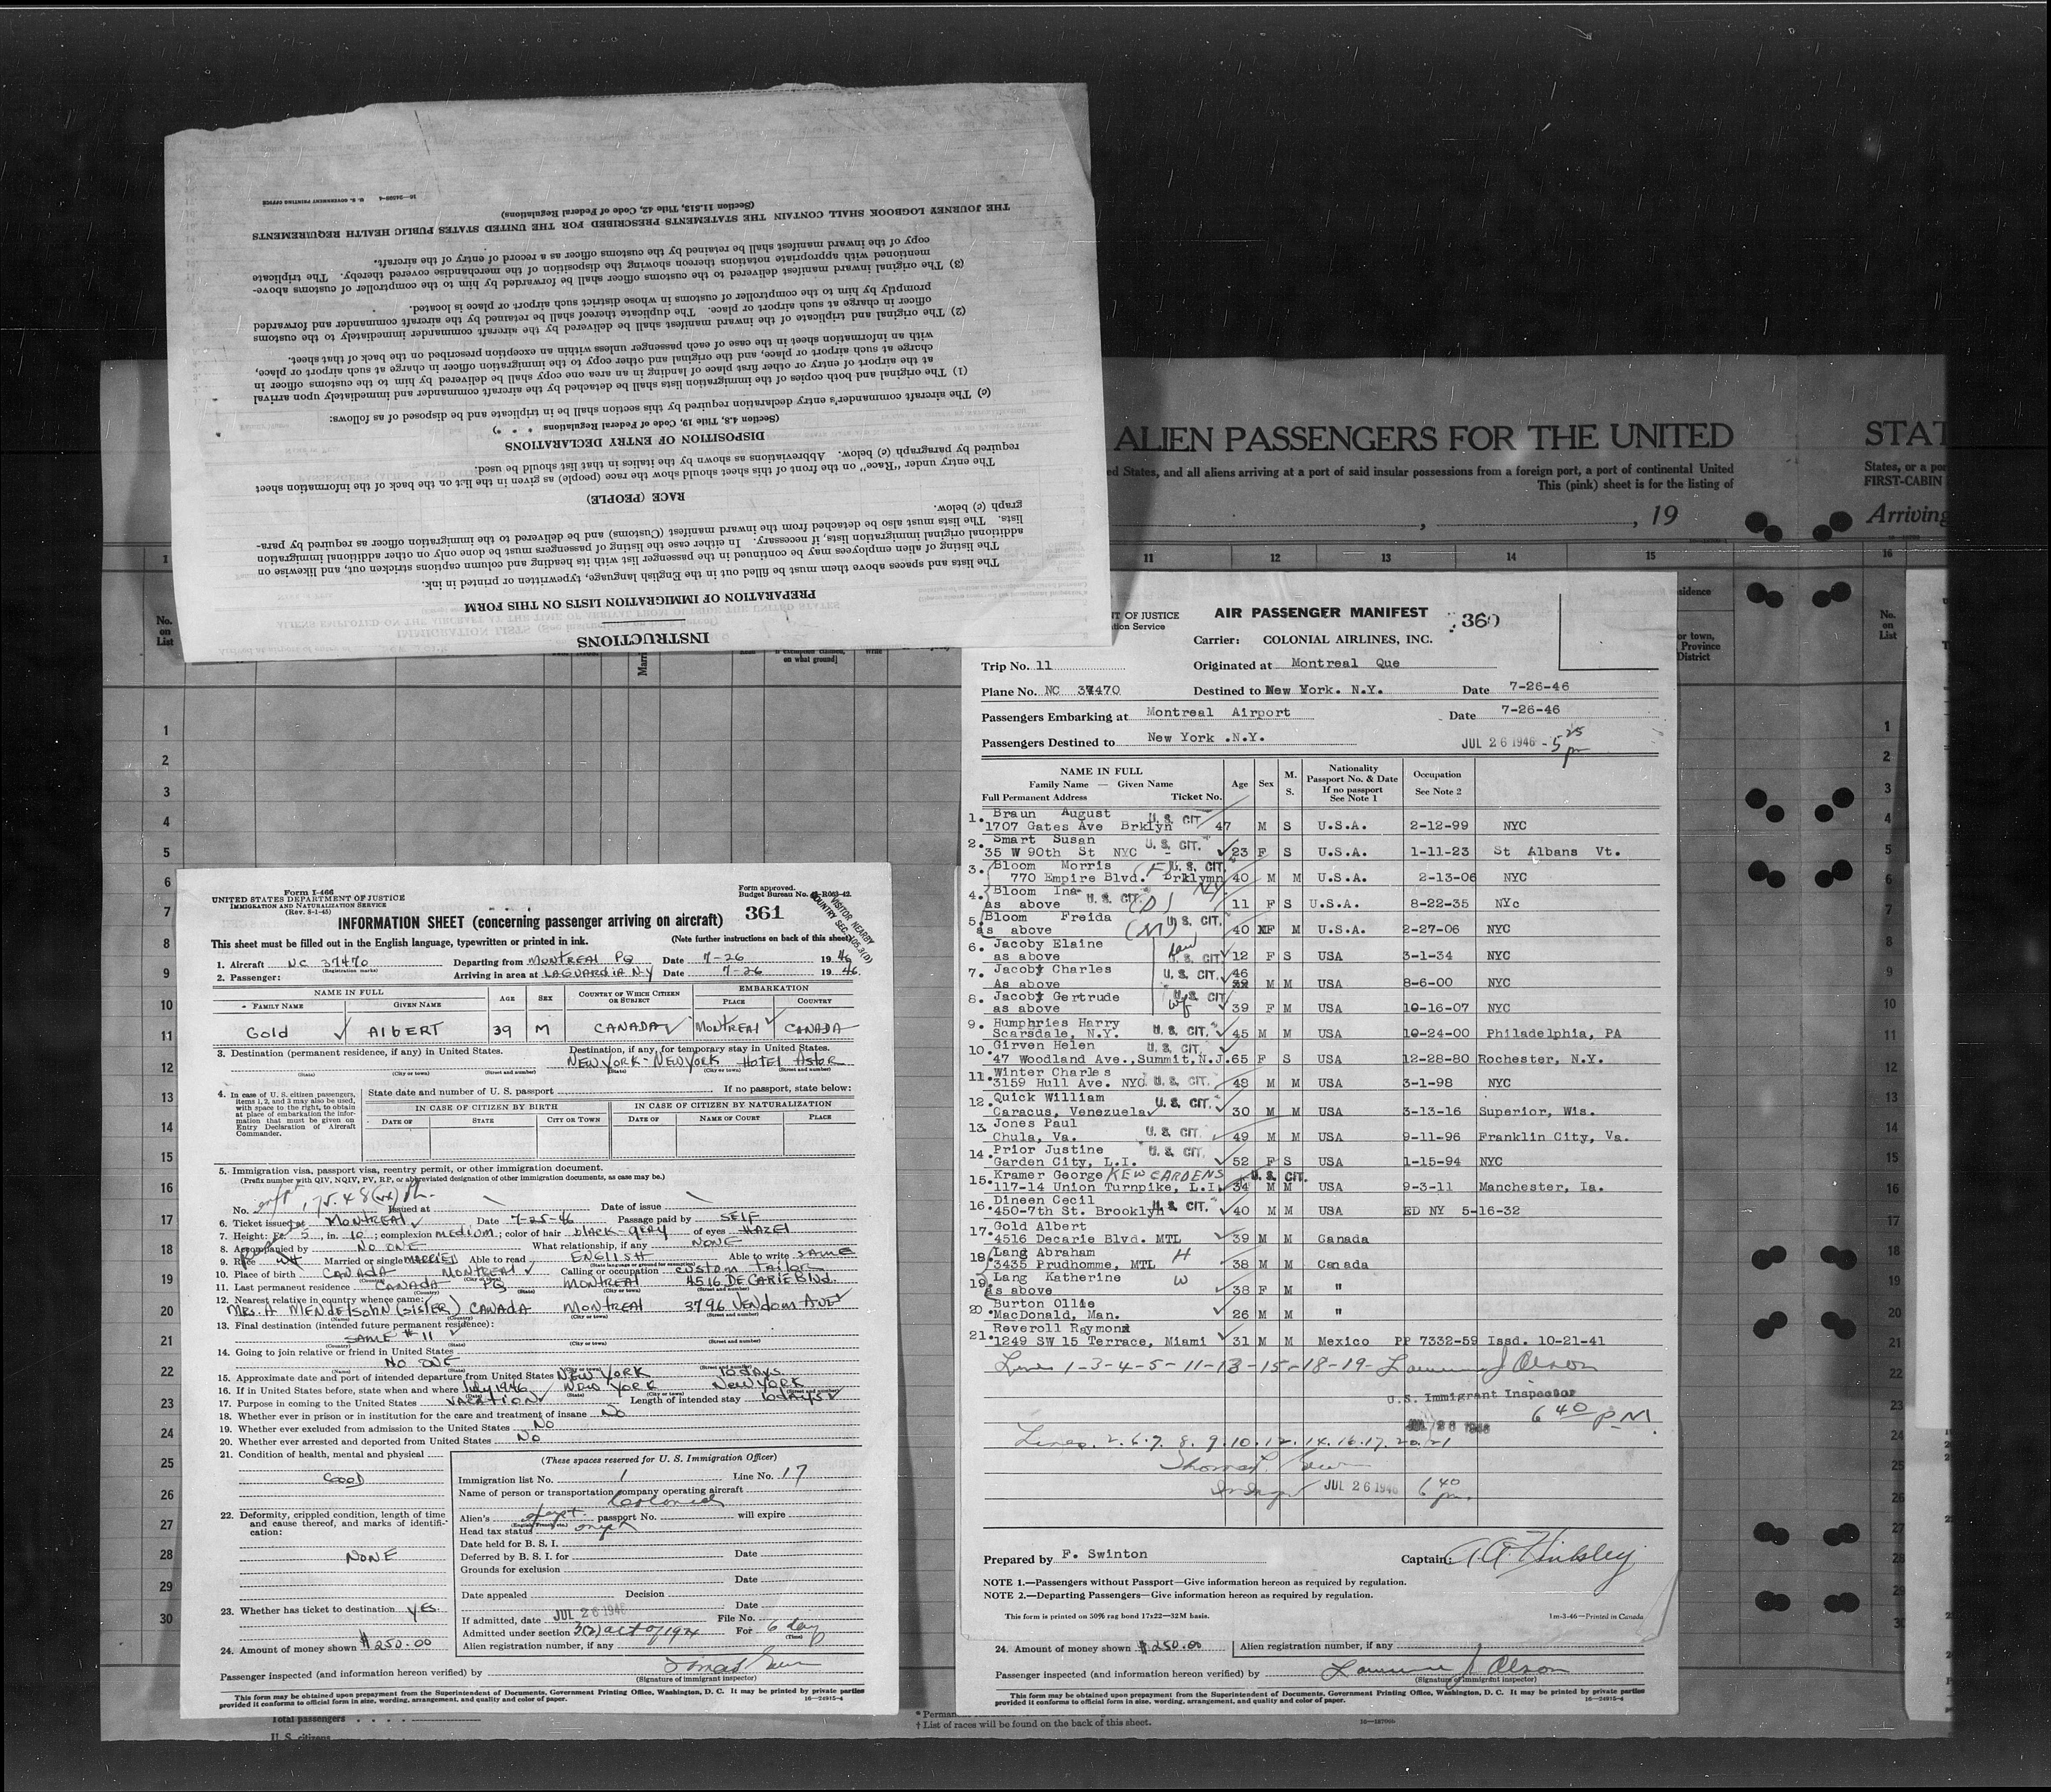 INSTRUCTIONS
PREPARATION OF IMMIGRATION LISTS ON THIS FORM
The lists and spaces above them must be filled out in the English language, typewritten or printed in ink.
The listing of alien employees may be continued in the passenger list with its heading and column captions stricken out, and likewise on
additional original immigration lists, if necessary. In either case the listing of passengers must be done only on other additional immigration
lists. The lists must also be detached from the inward manifest (Customs) and be delivered to the immigration officer as required by para-
graph (c) below.
RACE (PEOPLE)
The entry under "Race" on the front of this sheet should show the race (people) as given in the list on the back of the information sheet
required by paragraph (c) below. Abbreviations as shown by the italics in that list should be used.
DISPOSITION OF ENTRY DECLARATIONS
(Section 4.8, Title 19, Code of Federal Regulations * * *)
(c) The aircraft commander's entry declaration required by this section shall be in triplicate and be disposed of as follows:
(1) The original and both copies of the immigration lists shall be detached by the aircraft commander and immediately upon arrival
at the airport of entry or other first place of landing in an area one copy shall be delivered by him to the customs officer in
charge at such airport or place, and the original and other copy to the immigration officer in charge at such airport or place,
with an information sheet in the case of each passenger unless within an exception prescribed on the back of that sheet.
(2) The original and triplicate of the inward manifest shall be delivered by the aircraft commander immediately to the customs
officer in charge at such airport or place. The duplicate thereof shall be retained by the aircraft commander and forwarded
promptly by him to the comptroller of customs in whose district such airport or place is located.
(3) The original inward manifest delivered to the customs officer shall be forwarded by him to the comptroller of customs above-
mentioned with appropriate notations thereon showing the disposition of the merchandise covered thereby. The triplicate
copy of the inward manifest shall be retained by the customs officer as a record of entry of the aircraft.
THE JOURNEY LOGBOOK SHALL CONTAIN THE STATEMENTS PRESCRIBED FOR THE UNITED STATES PUBLIC HEALTH REQUIREMENTS
(Section 11.513, Title 42, Code of Federal Regulations)
U. S. GOVERNMENT PRINTING OFFICE
ALIEN PASSENGERS FOR THE UNITED
STAT
ed States, and all aliens arriving at a port of said insular possessions from a foreign port, a port of continental United
This (pink) sheet is for the listing of
States, or a po
FIRST-CABIN
, 19
Arriving
11 12 13 14 15 16
No. on List
Form I-466
UNITED STATES DEPARTMENT OF JUSTICE
IMMIGRATION AND NATURALIZATION SERVICE
(Rev. 8-1-45)
Form approved.
Budget Bureau No. 43-R063-42.
INFORMATION SHEET (concerning passenger arriving on aircraft) 361
VISITOR NEARBY
This sheet must be filled out in the English language, typewritten or printed in ink. (Note further instructions on back of this sheet.)
1. Aircraft NC 37470 Departing from MONTREAL PQ Date 7-26 1946
(Registration marks)
2. Passenger: Arriving in area at LAGUARDIA N.Y Date 7-26 1946
NAME IN FULL AGE SEX COUNTRY OF WHICH CITIZEN OR SUBJECT EMBARKATION
FAMILY NAME GIVEN NAME PLACE COUNTRY
Gold ALBERT 39 M CANADA MONTREAL CANADA
3. Destination (permanent residence, if any) in United States. Destination, if any, for temporary stay in United States.
NEW YORK - NEW YORK HOTEL Astor
(State) (City or town) (Street and number) (State) (City or town) (Street and number)
4. In case of U. S. citizen passengers, items 1, 2, and 3 may also be used, with space to the right, to obtain at place of embarkation the information that must be given on Entry Declaration of Aircraft Commander.
State date and number of U. S. passport If no passport, state below:
IN CASE OF CITIZEN BY BIRTH IN CASE OF CITIZEN BY NATURALIZATION
DATE OF STATE CITY OR TOWN DATE OF NAME OF COURT PLACE
5. Immigration visa, passport visa, reentry permit, or other immigration document.
(Prefix number with QIV, NQIV, PV, RP, or abbreviated designation of other immigration documents, as case may be.)
No. Issued at Date of issue
6. Ticket issued at MONTREAL Date 7-25-46 Passage paid by SELF
7. Height: Ft. 5, in. 10; complexion MEDIUM; color of hair black-grey of eyes HAZEL
8. Accompanied by NO ONE What relationship, if any NONE
9. Race Married or single MARRIED Able to read ENGLISH Able to write SAME
10. Place of birth CANADA MONTREAL Calling or occupation custom Tailor
11. Last permanent residence CANADA PQ MONTREAL 4516 DECARIE Blvd.
12. Nearest relative in country whence came:
MRS. A MENDELSOHN (SISTER) CANADA MONTREAL 3796 VENDOM AVE
13. Final destination (intended future permanent residence):
SAME # 11
14. Going to join relative or friend in United States
NO ONE
15. Approximate date and port of intended departure from United States NEW YORK 10 days
16. If in United States before, state when and where July 1946 NEW YORK NEW YORK
17. Purpose in coming to the United States VACATION Length of intended stay 10 days
18. Whether ever in prison or in institution for the care and treatment of insane No
19. Whether ever excluded from admission to the United States No
20. Whether ever arrested and deported from United States No
21. Condition of health, mental and physical
GOOD
22. Deformity, crippled condition, length of time and cause thereof, and marks of identification:
NONE
23. Whether has ticket to destination YES
24. Amount of money shown $250.00
(These spaces reserved for U. S. Immigration Officer)
Immigration list No. 1 Line No. 17
Name of person or transportation company operating aircraft
Colonial
Alien's passport No. will expire
Head tax status
Date held for B. S. I.
Deferred by B. S. I. for Date
Grounds for exclusion
Date
Date appealed Decision
Date
If admitted, date JUL 26 1946 File No.
Admitted under section 3(2) act of 1924 For 6 day
(Time)
Alien registration number, if any
Passenger inspected (and information hereon verified) by
(Signature of immigrant inspector)
This form may be obtained upon prepayment from the Superintendent of Documents, Government Printing Office, Washington, D. C. It may be printed by private parties
provided it conforms to official form in size, wording, arrangement, and quality and color of paper. 16—24915-4
Total passengers
U. S. citizens
T OF JUSTICE
tion Service
AIR PASSENGER MANIFEST 360
Carrier: COLONIAL AIRLINES, INC.
Trip No. 11 Originated at Montreal Que
Plane No. NC 37470 Destined to New York. N.Y. Date 7-26-46
Passengers Embarking at Montreal Airport Date 7-26-46
Passengers Destined to New York .N.Y. JUL 26 1946 - 5 25 pm
NAME IN FULL
Family Name — Given Name
Full Permanent Address Ticket No.
Age Sex M. S.
Nationality Passport No. & Date If no passport See Note 1
Occupation See Note 2
1. Braun August U. S. CIT
1707 Gates Ave Brklyn 47 M S U.S.A. 2-12-99 NYC
2. Smart Susan U. S. CIT.
35 W 90th St NYC 23 F S U.S.A. 1-11-23 St Albans Vt.
3. Bloom Morris (F) U. S. CIT
770 Empire Blvd. Brklymn 40 M M U.S.A. 2-13-06 NYC
4. Bloom Ina U. S. CIT. NY
as above (D) 11 F S U.S.A. 8-22-35 NYc
5. Bloom Freida U. S. CIT.
as above (M) 40 F M U.S.A. 2-27-06 NYC
6. Jacoby Elaine
as above U. S. CIT 12 F S USA 3-1-34 NYC
7. Jacoby Charles U. S. CIT. 46
As above 39 M M USA 8-6-00 NYC
8. Jacoby Gertrude U. S. CIT
as above wf 39 F M USA 10-16-07 NYC
9. Humphries Harry
Scarsdale, N.Y. U. S. CIT. 45 M M USA 10-24-00 Philadelphia, PA
10. Girven Helen U. S. CIT.
47 Woodland Ave.,Summit,N.J. 65 F S USA 12-28-80 Rochester, N.Y.
11. Winter Charles
3159 Hull Ave. NYC U. S. CIT. 48 M M USA 3-1-98 NYC
12. Quick William U. S. CIT.
Caracus, Venezuela 30 M M USA 3-13-16 Superior, Wis.
13. Jones Paul
Chula, Va. U. S. CIT. 49 M M USA 9-11-96 Franklin City, Va.
14. Prior Justine U. S. CIT.
Garden City, L.I. 52 F S USA 1-15-94 NYC
15. Kramer George KEW GARDENS U. S. CIT.
117-14 Union Turnpike, L.I. 34 M M USA 9-3-11 Manchester, Ia.
16. Dineen Cecil
450-7th St. Brooklyn U. S. CIT. 40 M M USA ED NY 5-16-32
17. Gold Albert
4516 Decarie Blvd. MTL 39 M M Canada
18. Lang Abraham H
3435 Prudhomme, MTL 38 M M Canada
19. Lang Katherine W
as above 38 F M "
20. Burton Ollie
MacDonald, Man. 26 M M "
21. Reveroll Raymond
1249 SW 15 Terrace, Miami 31 M M Mexico PP 7332-59 Issd. 10-21-41
Lines 1-3-4-5-11-13-15-18-19- Lawrence J Olson
U.S. Immigrant Inspector
6 40 PM
Lines. 2. 6. 7. 8. 9. 10. 12. 14. 16. 17. 20. 21
JUL 26 1946 6 40 pm.
Prepared by F. Swinton Captain:
NOTE 1.—Passengers without Passport—Give information hereon as required by regulation.
NOTE 2.—Departing Passengers—Give information hereon as required by regulation.
This form is printed on 50% rag bond 17x22—32M basis. 1m-3-46—Printed in Canada
24. Amount of money shown $250.00 Alien registration number, if any
Passenger inspected (and information hereon verified) by Lawrence J Olson
(Signature of immigrant inspector)
This form may be obtained upon prepayment from the Superintendent of Documents, Government Printing Office, Washington, D. C. It may be printed by private parties
provided it conforms to official form in size, wording, arrangement, and quality and color of paper. 16—24915-4
* Perman
† List of races will be found on the back of this sheet.